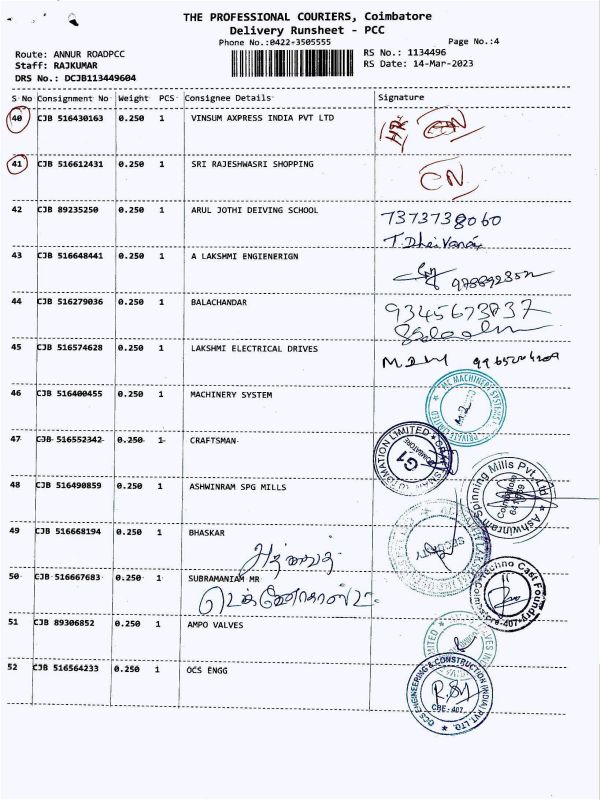 THE PROFESSIONAL COURIERS, Coimbatore
Delivery Runsheet - PCC
Phone No.:0422-3505555 Page No.:4
Route: ANNUR ROADPCC RS No.: 1134496
Staff: RAJKUMAR RS Date: 14-Mar-2023
DRS No.: DCJB113449604
S No Consignment No Weight PCS Consignee Details Signature
40 CJB 516430163 0.250 1 VINSUM AXPRESS INDIA PVT LTD
41 CJB 516612431 0.250 1 SRI RAJESHWASRI SHOPPING CN
42 CJB 89235250 0.250 1 ARUL JOTHI DEIVING SCHOOL 7373738060
43 CJB 516648441 0.250 1 A LAKSHMI ENGIENERIGN
44 CJB 516279036 0.250 1 BALACHANDAR
45 CJB 516574628 0.250 1 LAKSHMI ELECTRICAL DRIVES
46 CJB 516400455 0.250 1 MACHINERY SYSTEM
47 CJB 516552342 0.250 1 CRAFTSMAN
48 CJB 516490859 0.250 1 ASHWINRAM SPG MILLS
Ashwinram Spinning Mills Pvt. Ltd
49 CJB 516668194 0.250 1 BHASKAR
50 CJB 516667683 0.250 1 SUBRAMANIAM MR
51 CJB 89306852 0.250 1 AMPO VALVES
52 CJB 516564233 0.250 1 OCS ENGG
OCS ENGINEERING & CONSTRUCTION (INDIA) PVT. LTD.
CBE-407